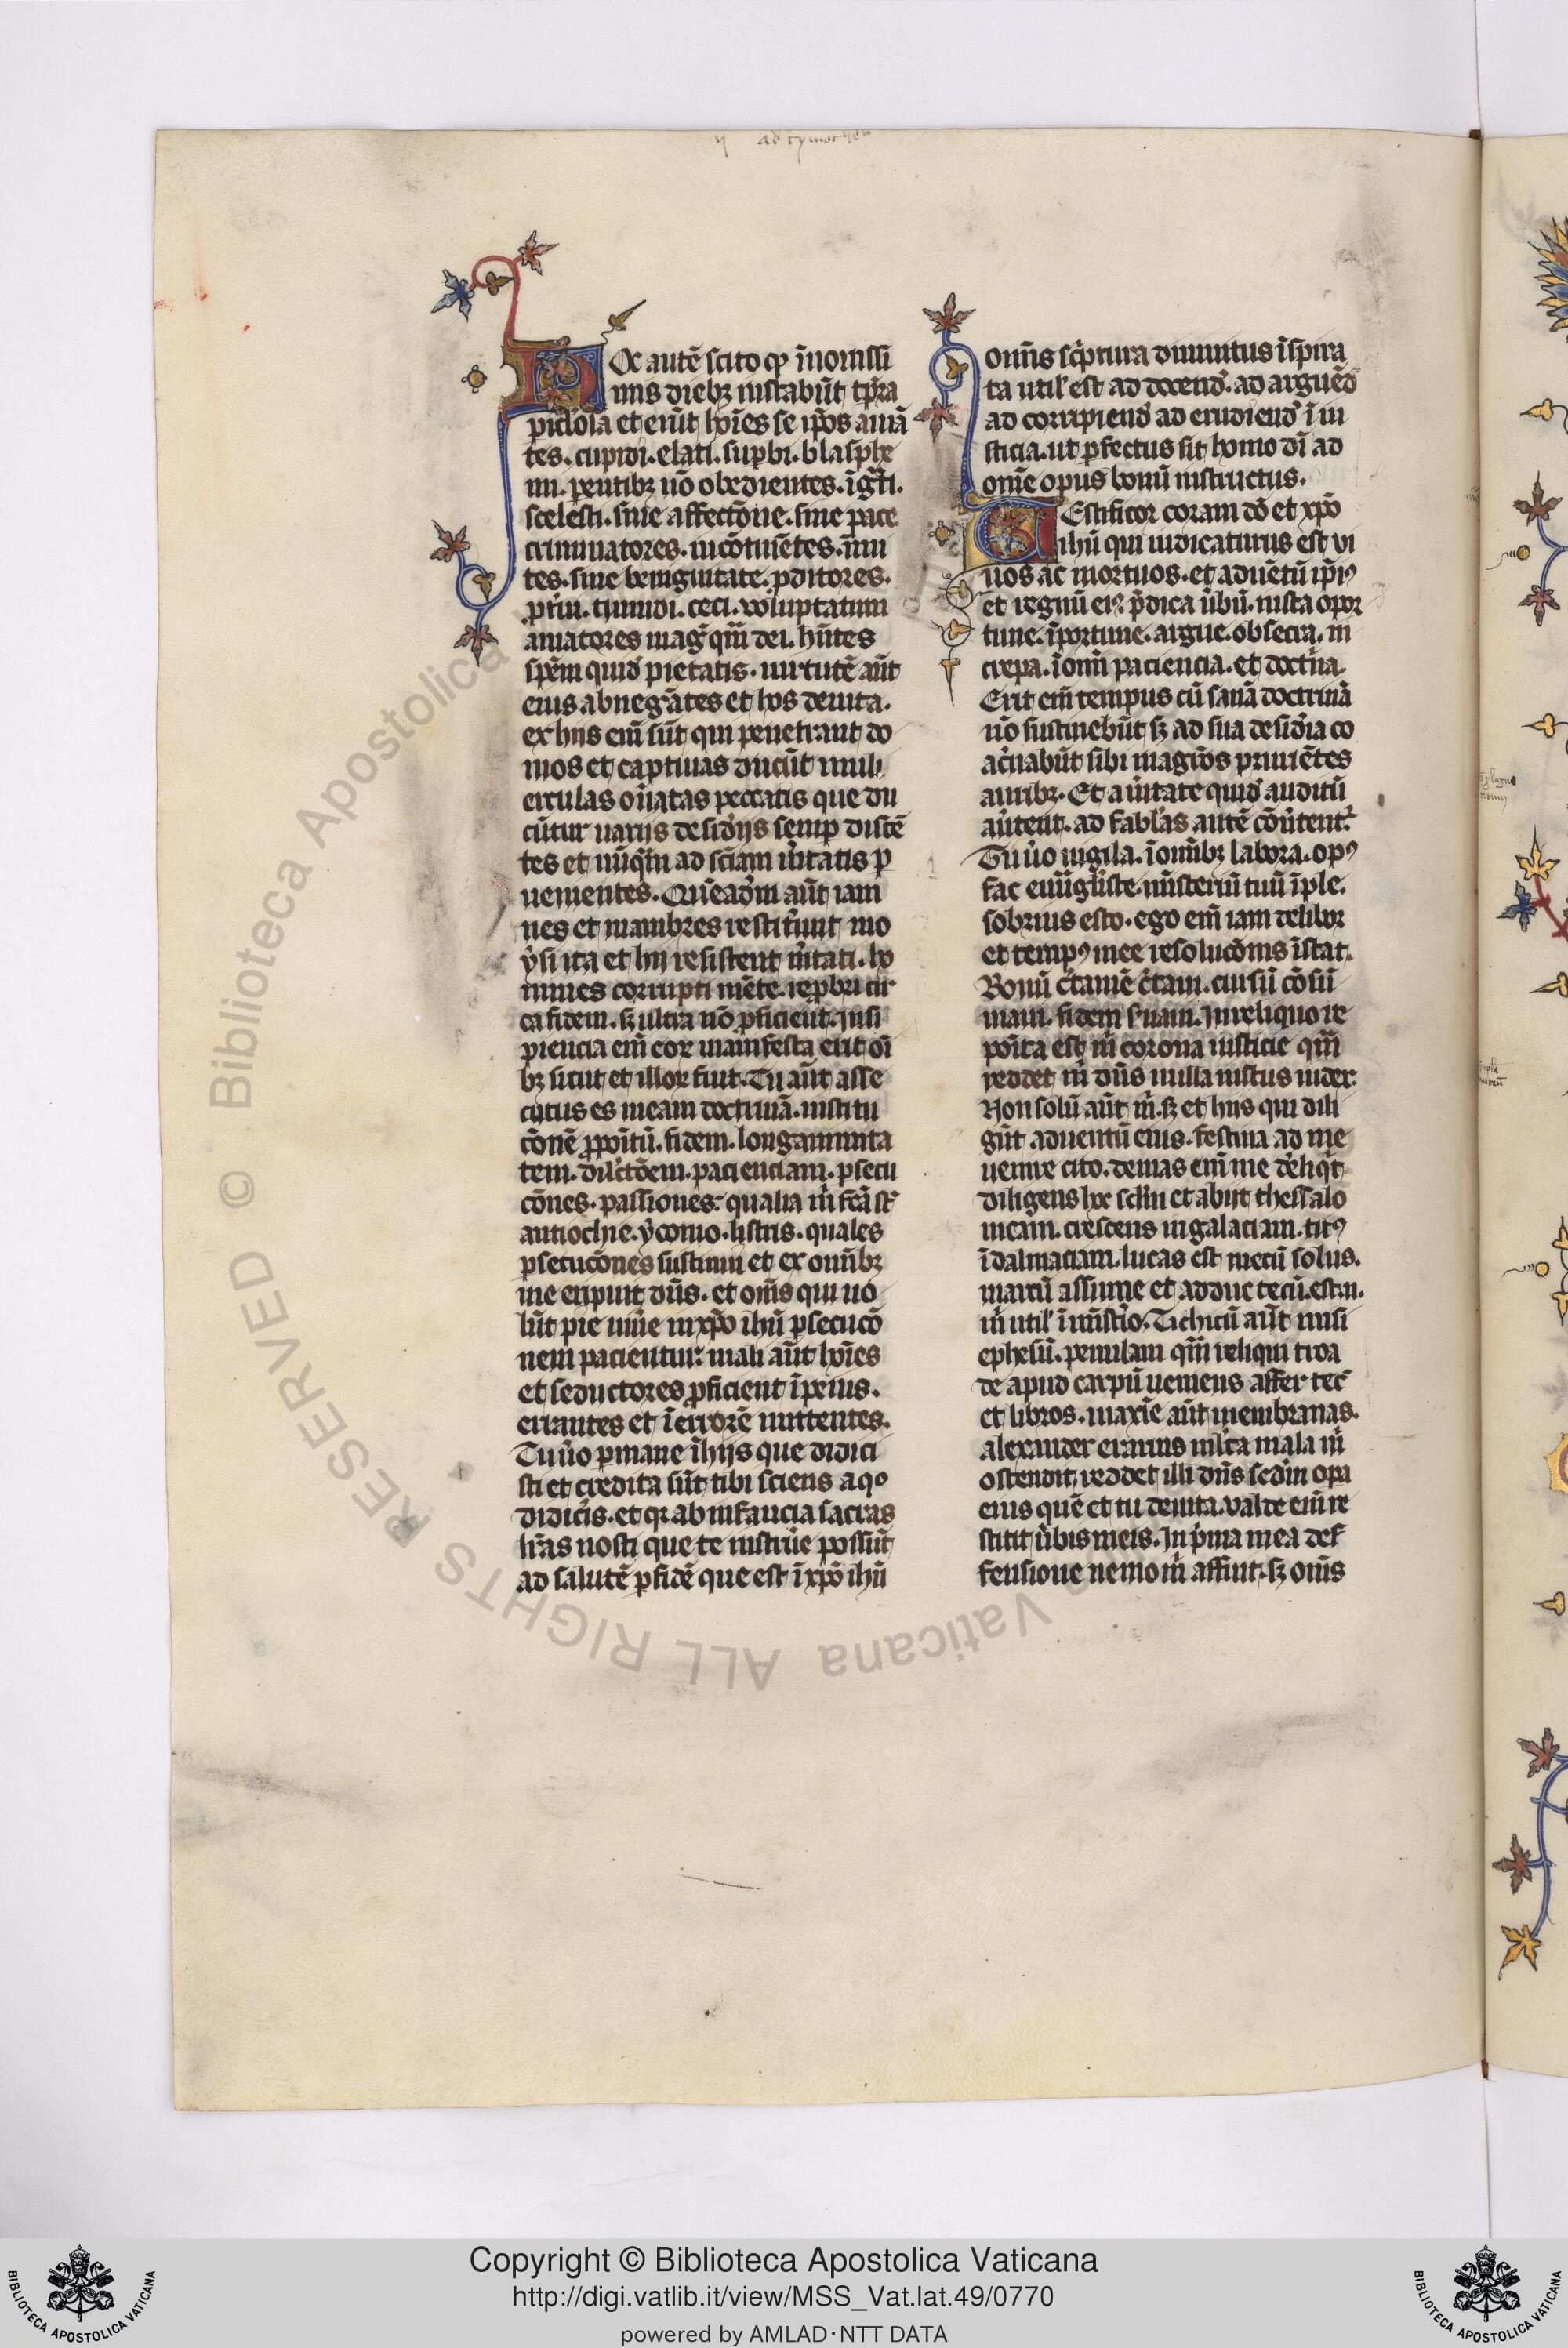 ij ad tymotheu
Hoc autē scito qp̄ ī nouissi
mis diebꝫ instabūt tp̄ra
piclo̾sa et erūt hoīes se ip̄os amā
tes. cupidi. elati. supbi. blasphe
mi. pentibꝫ nō obedientes. īgti.
scelesti. sine affectōne. sine pace
criminatores. incōtinētes. īmi
tes. sine benignitate. pditores.
ptui. tumidi. ceci. voluptatum
amatores mag̾ qm̄ dei. hn̄tes
spēm quid̾ pietatis. uirtutē aūt
eius abnegātes et hos deuita.
ex hiis em̄ sūt qui penetrant do
mos et captiuas ducūt muli
erculas on̾atas peccatis que du
cūtur uariis desid̾iis semp discē
tes et nūq̄m ad sciam u̾itatis p
uenientes. Quēadm̾ aūt iam
nes et mambres restit̾unt mo
ysi ita et hii resistent u̾itati. ho
mines corrupti mēte. repbri cir
ca fidem. sꝫ ultra nō pficient. Insi
piencia em̄ eoꝝ manifesta erit oī
bꝫ sicut et illoꝝ fuit. Tu aūt asse
cutus es meam doctrinā. institu
cōnē ppoītū. fidem. longanimita
tem. dil̾ctōem. pacienciam. psecu
cōnes. passiones. qualia m̾ fcā st̾
antiochie. yconio. listris. quales
psecucōnes sustinui et ex omībꝫ
me eripuit dn̄s. et om̄s qui uo
lūt pie uiu̾e in xp̄o ihū psecucō
nem pacientur. mali aūt hoīes
et seductores pficient ī peius.
errantes et ī errorē mittentes.
Tu u̾o pmane ī hijs que didici
sti et credita sūt tibi sciens a qo
didic̾is. et qꝛ ab infancia sacras
lr̄as nosti que te instru̾e possūt
ad salutē p fidē que est ī xp̄o ihū
om̄is sc̾ptura diuinitus īspira
ta util̾ est ad docend̾. ad arguēd̾
ad corripiend̾ ad erudiend̾ ī iu
sticia. ut pfectus sit homo dī ad
om̄e opus bonū instructus.
Testificor coram dō et xp̄o
ihū qui iudicaturus est vi
uos ac mortuos. et aduētū ip̄iꝰ
et regnū eiꝰ p̄dica u̾bū. insta opor
tune. īportune. argue. obsecra. in
crepa. ī om̄i paciencia. et doct̾na.
Erit em̄ tempus cū sanā doctrinā
nō sustinebūt sꝫ ad sua desid̾ia co
ac̾uabūt sibi magr̄os prurіētes
auribꝫ. Et a u̾itate quid̾ auditū
au̾tent. ad fabl̾as autē cōu̾tent.
Tu u̾o uigila. ī om̄ibꝫ labora. opꝰ
fac euūgliste. mīsteriū tuū īple.
sobrius esto. ego em̄ iam delibor
et tempꝰ mee resolucōnis īstat.
Bonū c̾tamē c̾taui. cursū cōsū
maui. fidem s̾uaui. In reliquo re
poīta est m̾ corona iusticie qm̄
reddet m̾ dn̄s in illa iustus iudex.
Non solū aūt m̾. sꝫ et hiis qui dili
gūt aduentū eius. festina ad me
uenire cito. demas em̄ me d̾eliqt
diligens hoc sclm̾ et abiit thessalo
nicam. crescens in galaciam. titꝰ
ī dalmaciam. lucas est mecū solus.
marcū assume et adduc tecū. est .n.
m̾ util̾ ī mīst̾io. Tichicū aūt misi
ephesū. penulam qm̄ reliqui troa
de apud carpū ueniens affer tec̾
et libros. maxīe aūt membranas.
alexander erarius ml̾ta mala m̾
ostendit. reddet illi dn̄s scdm̾ opa
eius quē et tu deuita. valde em̄ re
stitit u̾bis meis. In p̾ma mea def
fensione nemo m̾ affuit. sꝫ om̄s
© Biblioteca Apostolica Vaticana ALL RIGHTS RESERVED
Copyright © Biblioteca Apostolica Vaticana
http://digi.vatlib.it/view/MSS_Vat.lat.49/0770
powered by AMLAD·NTT DATA
BIBLIOTECA APOSTOLICA VATICANA
BIBLIOTECA APOSTOLICA VATICANA